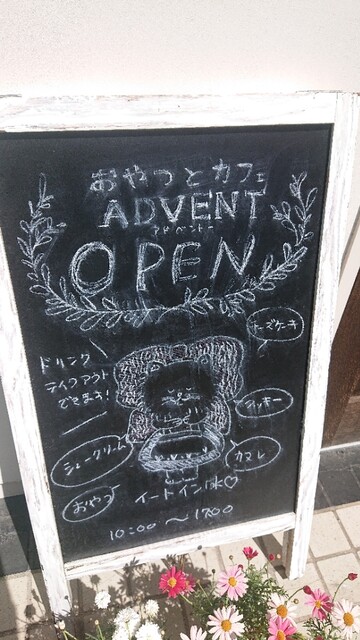 おやつとカフェ
ADVENT
アドベント
OPEN
チーズケーキ
ドリンク
テイクアウト
できます!
クッキー
シュークリーム
カヌレ
おやつ
イートインOK♡
10:00〜17:00